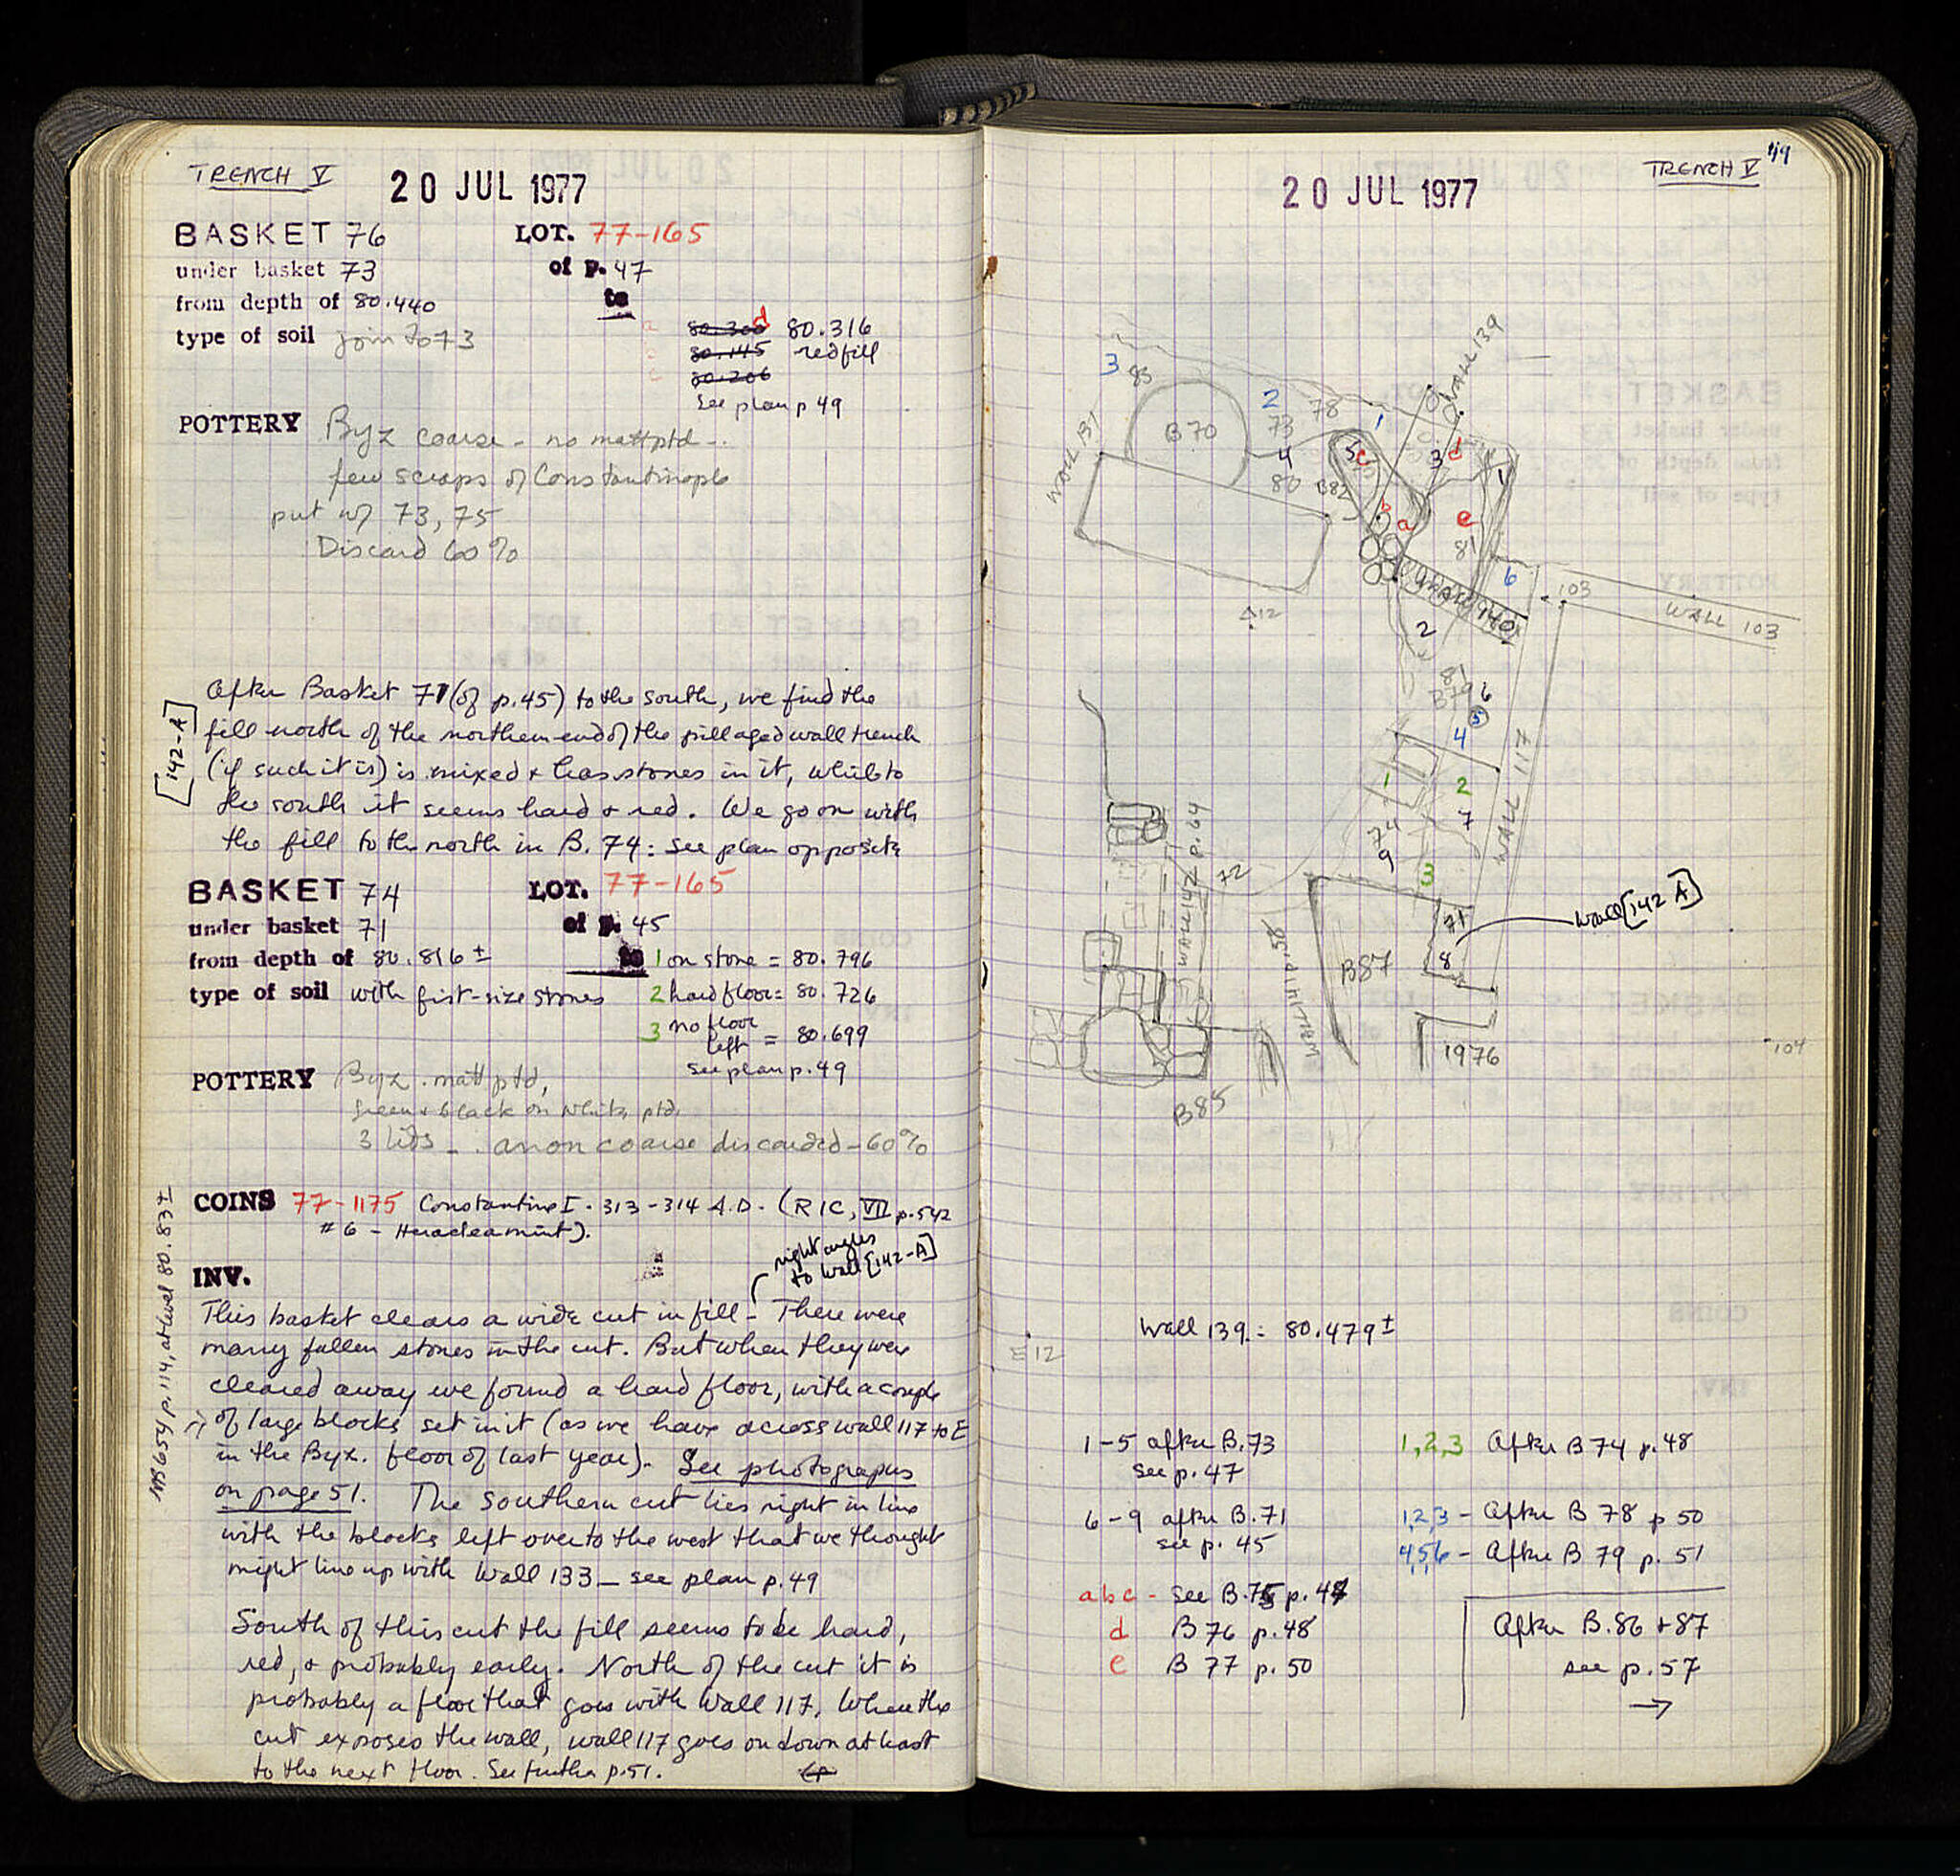 TRENCH V
20 JUL 1977
BASKET 76 LOT. 77-165
under basket 73 of p. 47
from depth of 80.440 to
type of soil join to 73
a 80.300 d 80.316
80.145 redfill
c 80.206
See plan p 49
POTTERY Byz coarse - no matt ptd -..
few scraps of Constantinople
put w/ 73, 75
Discard 60%
[142-A]
After Basket 71 (of p. 45) to the south, we find the
fill north of the northern end of the pillaged wall trench
(if such it is) is mixed + has stones in it, while to
the south it seems hard + red. We go on with
the fill to the north in B. 74: see plan opposite
BASKET 74 LOT. 77-165
under basket 71 of p. 45
from depth of 80.816 ± to 1 on stone = 80.796
type of soil with fist-size stones 2 hard floor = 80.726
3 no floor left = 80.699
see plan p. 49
POTTERY Byz. matt ptd,
green + black on white ptd.
3 lids - . anon coarse discarded - 60%
COINS 77-1175 Constantine I. 313-314 A.D. (RIC, VII p. 542
#6 - Heraclea mint).
INV.
right angles
to wall [142-A]
This basket clears a wide cut in fill - There were
many fallen stones in the cut. But when they were
cleared away we found a hard floor, with a couple
of large blocks set in it (as we have across wall 117 to E
in the Byz. floor of last year). See photographs
on page 51. The southern cut lies right in line
with the blocks left over to the west that we thought
might line up with Wall 133 - see plan p. 49
South of this cut the fill seems to be hard,
red, + probably early. North of the cut it is
probably a floor that goes with Wall 117. Where the
cut exposes the wall, wall 117 goes on down at least
to the next floor. See further p. 51.
NB 654 p. 114, at level 80.837
49
TRENCH V
20 JUL 1977
WALL 139
3
85
2
78
1
73
B 70
WALL 131
4
80
B82
5
c
3
d
1
b
a
e
81
6
WALL 140
103
WALL 103
Δ12
2
81
B79
6
5
4
WALL 117
1
2
7
74
9
3
72
WALL 142 p. 64
71
wall [142 A]
8
B87
Wall 141 p. 58
1976
104
B85
Wall 139 = 80.479 ±
E 12
1-5 after B. 73
see p. 47
6-9 after B. 71
see p. 45
abc - see B. 75 p. 47
d B 76 p. 48
e B 77 p. 50
1,2,3 After B 74 p. 48
1,2,3 - After B 78 p 50
4,5,6 - After B 79 p. 51
After B. 86 + 87
see p. 57
→